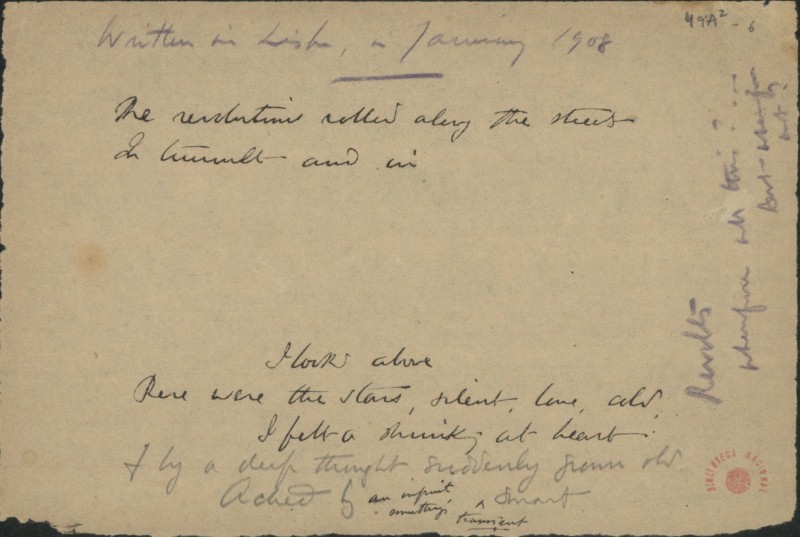 49A² - 6
Written in Lisbon, in January 1908
The revolution rolled along the streets
In tumult and in
I look'd above
There were the stars, silent, lone, cold,
I felt a shrinking at heart
& by a deep thought suddenly grown old
Ached by an infinit something's transient smart
Revolts
wherefore all this? —
But wherefore
not?
BIBLIOTECA NACIONAL